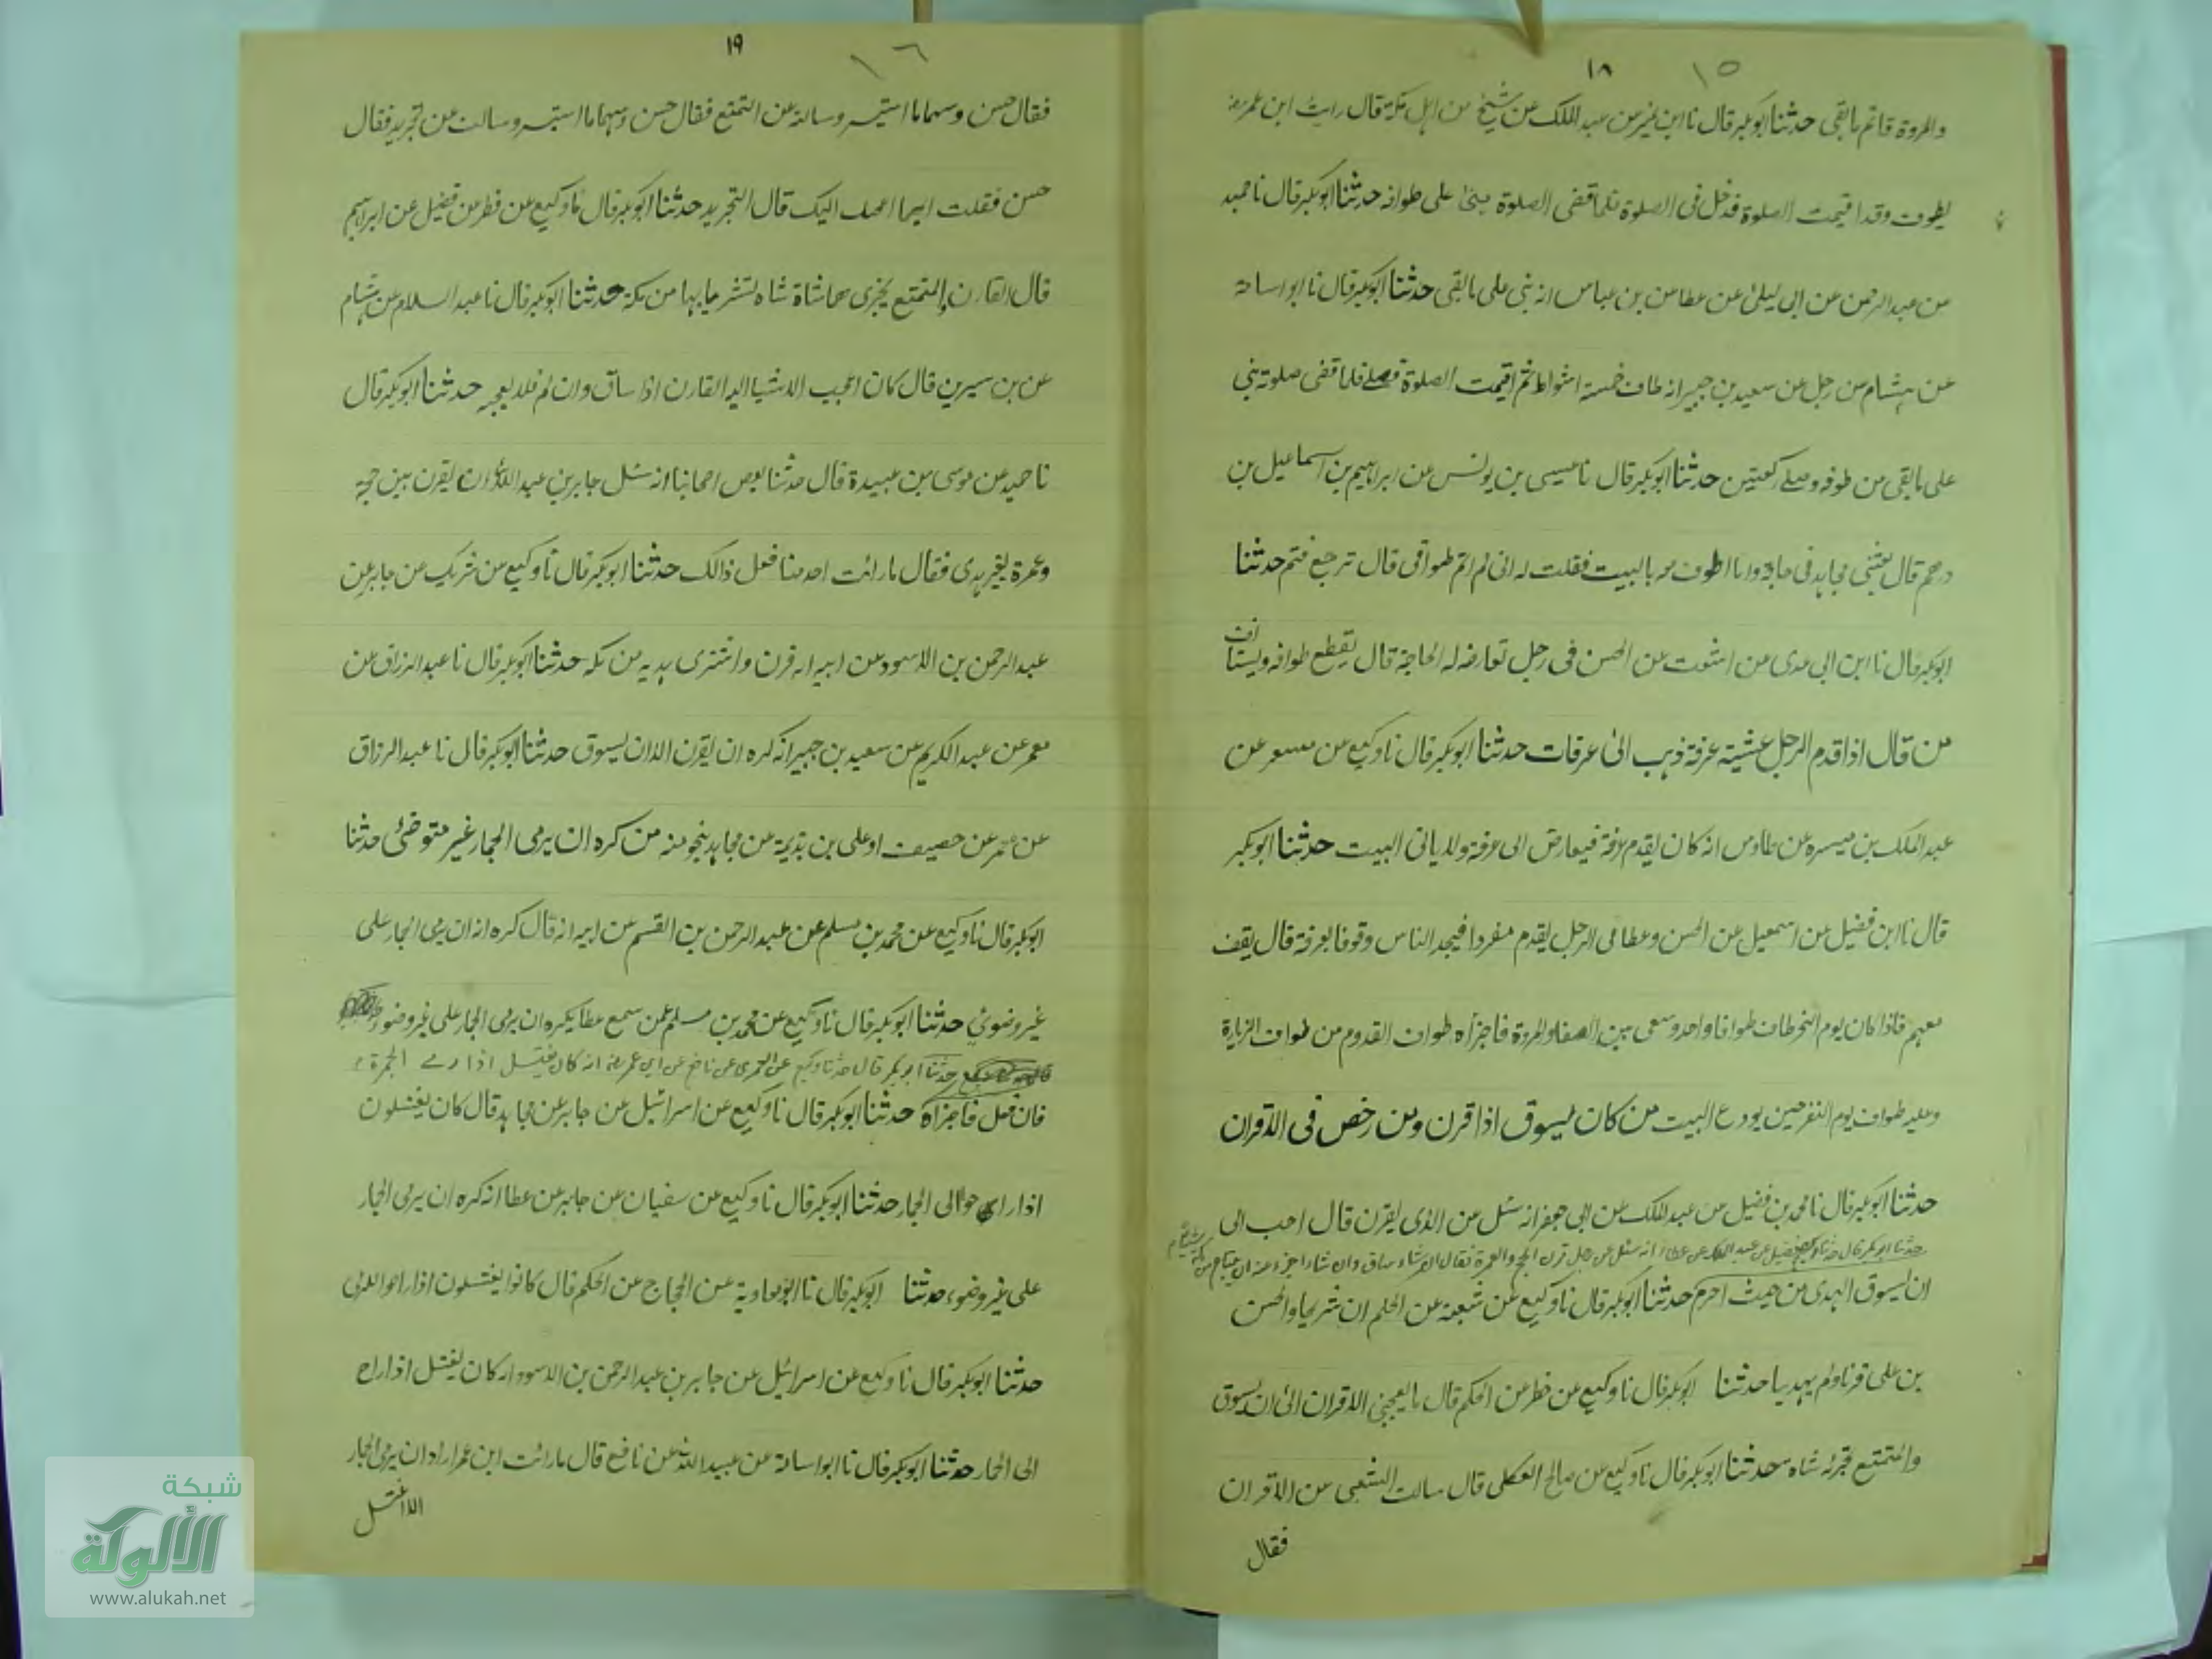 ١٨ ١٥
والمروة فاتم ما بقى حدثنا ابوبكر قال نا ابن نمير عن عبد الملك عن شيخ من اهل مكة قال رايت ابن عمر رضہ
يطوف وقد اقيمت الصلوة فدخل فى الصلوة فلما قضى الصلوة بنىٰ على طوافه حدثنا ابوبكر قال نا حميد
من عبد الرحمن عن ابى ليلىٰ عن عطا عن بن عباس انه بنى على ما بقى حدثنا ابوبكر قال نا ابو اسامة
عن ہشام عن رجل عن سعيد بن جبير انه طاف خمسة اشواط ثم اقيمت الصلوة فصلے فلما قضى صلوته بنى
على ما بقى من طوفه وصلے ركعتين حدثنا ابوبكر قال نا عيسى بن يونس عن ابراہيم بن اسماعيل بن
قال بعثنى مجاہد فى حاجة وانا اطوف معه بالبيت فقلت له انى لم اتم طوافى قال ترجع فتتم حدثنا
ابوبكر قال نا ابن ابى عدى عن اشعث عن الحسن فى رجل تعارضه له الحاجة قال يقطع طوافه ويستانف
من قال اذا قدم الرجل عشية عرفة ذہب الىٰ عرفات حدثنا ابوبكر قال نا وكيع عن مسعر عن
عبد الملك بن ميسره عن طاوس انه كان يقدم عرفة فيعارض الى عرفة ولا ياتى البيت حدثنا ابوبكر
قال نا ابن فضيل عن اسمعيل عن الحسن وعطا فى الرجل يقدم مفردا فيجد الناس وقوفا بعرفة قال يقف
معہم فاذا كان يوم النحر طاف طوافا واحدا وسعى بين الصفا والمروة فاجزاه طواف القدوم من طواف الزيارة
وعليه طواف يوم النفر حين يودع البيت من كان يسوق اذا قرن ومن رخص فى الاقران
حدثنا ابوبكر قال نا محمد بن فضيل عن عبد الملك عن ابى جعفر انه سئل عن الذى يقرن قال احب الى
حدثنا ابوبكر قال حدثنا فضيل عن عبد الملك عن عطا انه سئل عن رجل قرن الحج والعمرة فقال ان شاء ساق وان شاء اجزء عنه ان يبتاع من مكة شاة
ان يسوق الہدى من حيث احرم حدثنا ابوبكر قال نا وكيع عن شعبة عن الحكم ان شريحا والحسن
بن على قرنا ولم يہديا حدثنا ابوبكر قال نا وكيع عن فطر عن الحكم قال ما يعجبنى الاقران الىٰ ان يسوق
والمتمتع تجزئه شاه حدثنا ابوبكر قال نا وكيع عن صالح العكلى قال سالت الشعبى عن الاقران
فقال
١٩ ١٦
فقال حسن وسہاما استيسر وسالته عن التمتع فقال حسن وسہاما استيسر وسالت عن تجريد فقال
حسن فقلت ايہما احب اليك قال التجريد حدثنا ابوبكر قال نا وكيع عن فطر عن فضيل عن ابراہيم
قال القارن والمتمتع يجزى شاة شاه من مكة حدثنا ابوبكر قال نا عبد السلام عن ہشام
عن بن سيرين قال كان اعجب الاشيا اليه القارن اذا ساق وان لم فلا يعجبه حدثنا ابوبكر قال
نا حميد عن موسى بن عبيدة قال حدثنا بعض اصحابنا انه سئل جابر بن عبد الله ان يقرن بين حجة
وعمرة بغير ہدى فقال ما رائت احد منا فعل ذالك حدثنا ابوبكر قال نا وكيع عن شريك عن جابر عن
عبد الرحمن بن الاسود عن ابيه انه قرن واشترى ہديه من مكه حدثنا ابوبكر قال نا عبد الرزاق عن
معمر عن عبد الكريم عن سعيد بن جبير انه كره ان يقرن الا ان يسوق حدثنا ابوبكر قال نا عبد الرزاق
عن معمر عن خصيف او على بن بذيمة عن مجاہد بنحو منه من كره ان يرمى الجمار غير متوضئ حدثنا
ابوبكر قال نا وكيع عن محمد بن مسلم عن عبد الرحمن بن القسم عن ابيه انه قال كره انه ان يرمى الجمار على
غير وضوئ حدثنا ابوبكر قال نا وكيع عن محمد بن مسلم عمن سمع عطا يكره ان يرمى الجمار على غير وضوء
حدثنا ابوبكر قال حدثنا وكيع عن العمرى عن نافع عن ابن عمر رضہ انه كان يغتسل اذا رمے الجمرة
فان فعل فاجزاه حدثنا ابوبكر قال نا وكيع عن اسرائيل عن جابر عن مجاہد قال كان يغتسلون
اذا راحوا الى الجمار حدثنا ابوبكر قال نا وكيع عن سفيان عن جابر عن عطا انه كره ان يرمى الجمار
على غير وضوء حدثنا ابوبكر قال نا ابو معاوية عن الحجاج عن الحكم قال كانوا يغتسلون اذا راحوا للرمى
حدثنا ابوبكر قال نا وكيع عن اسرائيل عن جابر بن عبد الرحمن بن الاسود انه كان يغتسل اذا راح
الى الجمار حدثنا ابوبكر قال نا ابو اسامة عن عبيد الله عن نافع قال ما رائت ابن عمر اراد ان يرمى الجمار
الا اغتسل
شبكة
الألوكة
www.alukah.net